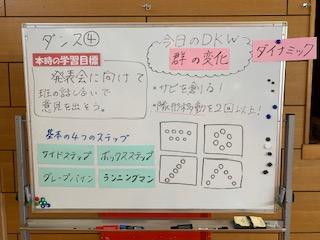 ダンス④
本時の学習目標
発表会に向けて
班の話し合いで
意見を出そう。
基本の4つのステップ
サイドステップ
ボックスステップ
グレープバイン
ランニングマン
今日のDKW
群の変化
ダイナミック
・サビを創る!
・隊形移動を2回以上!